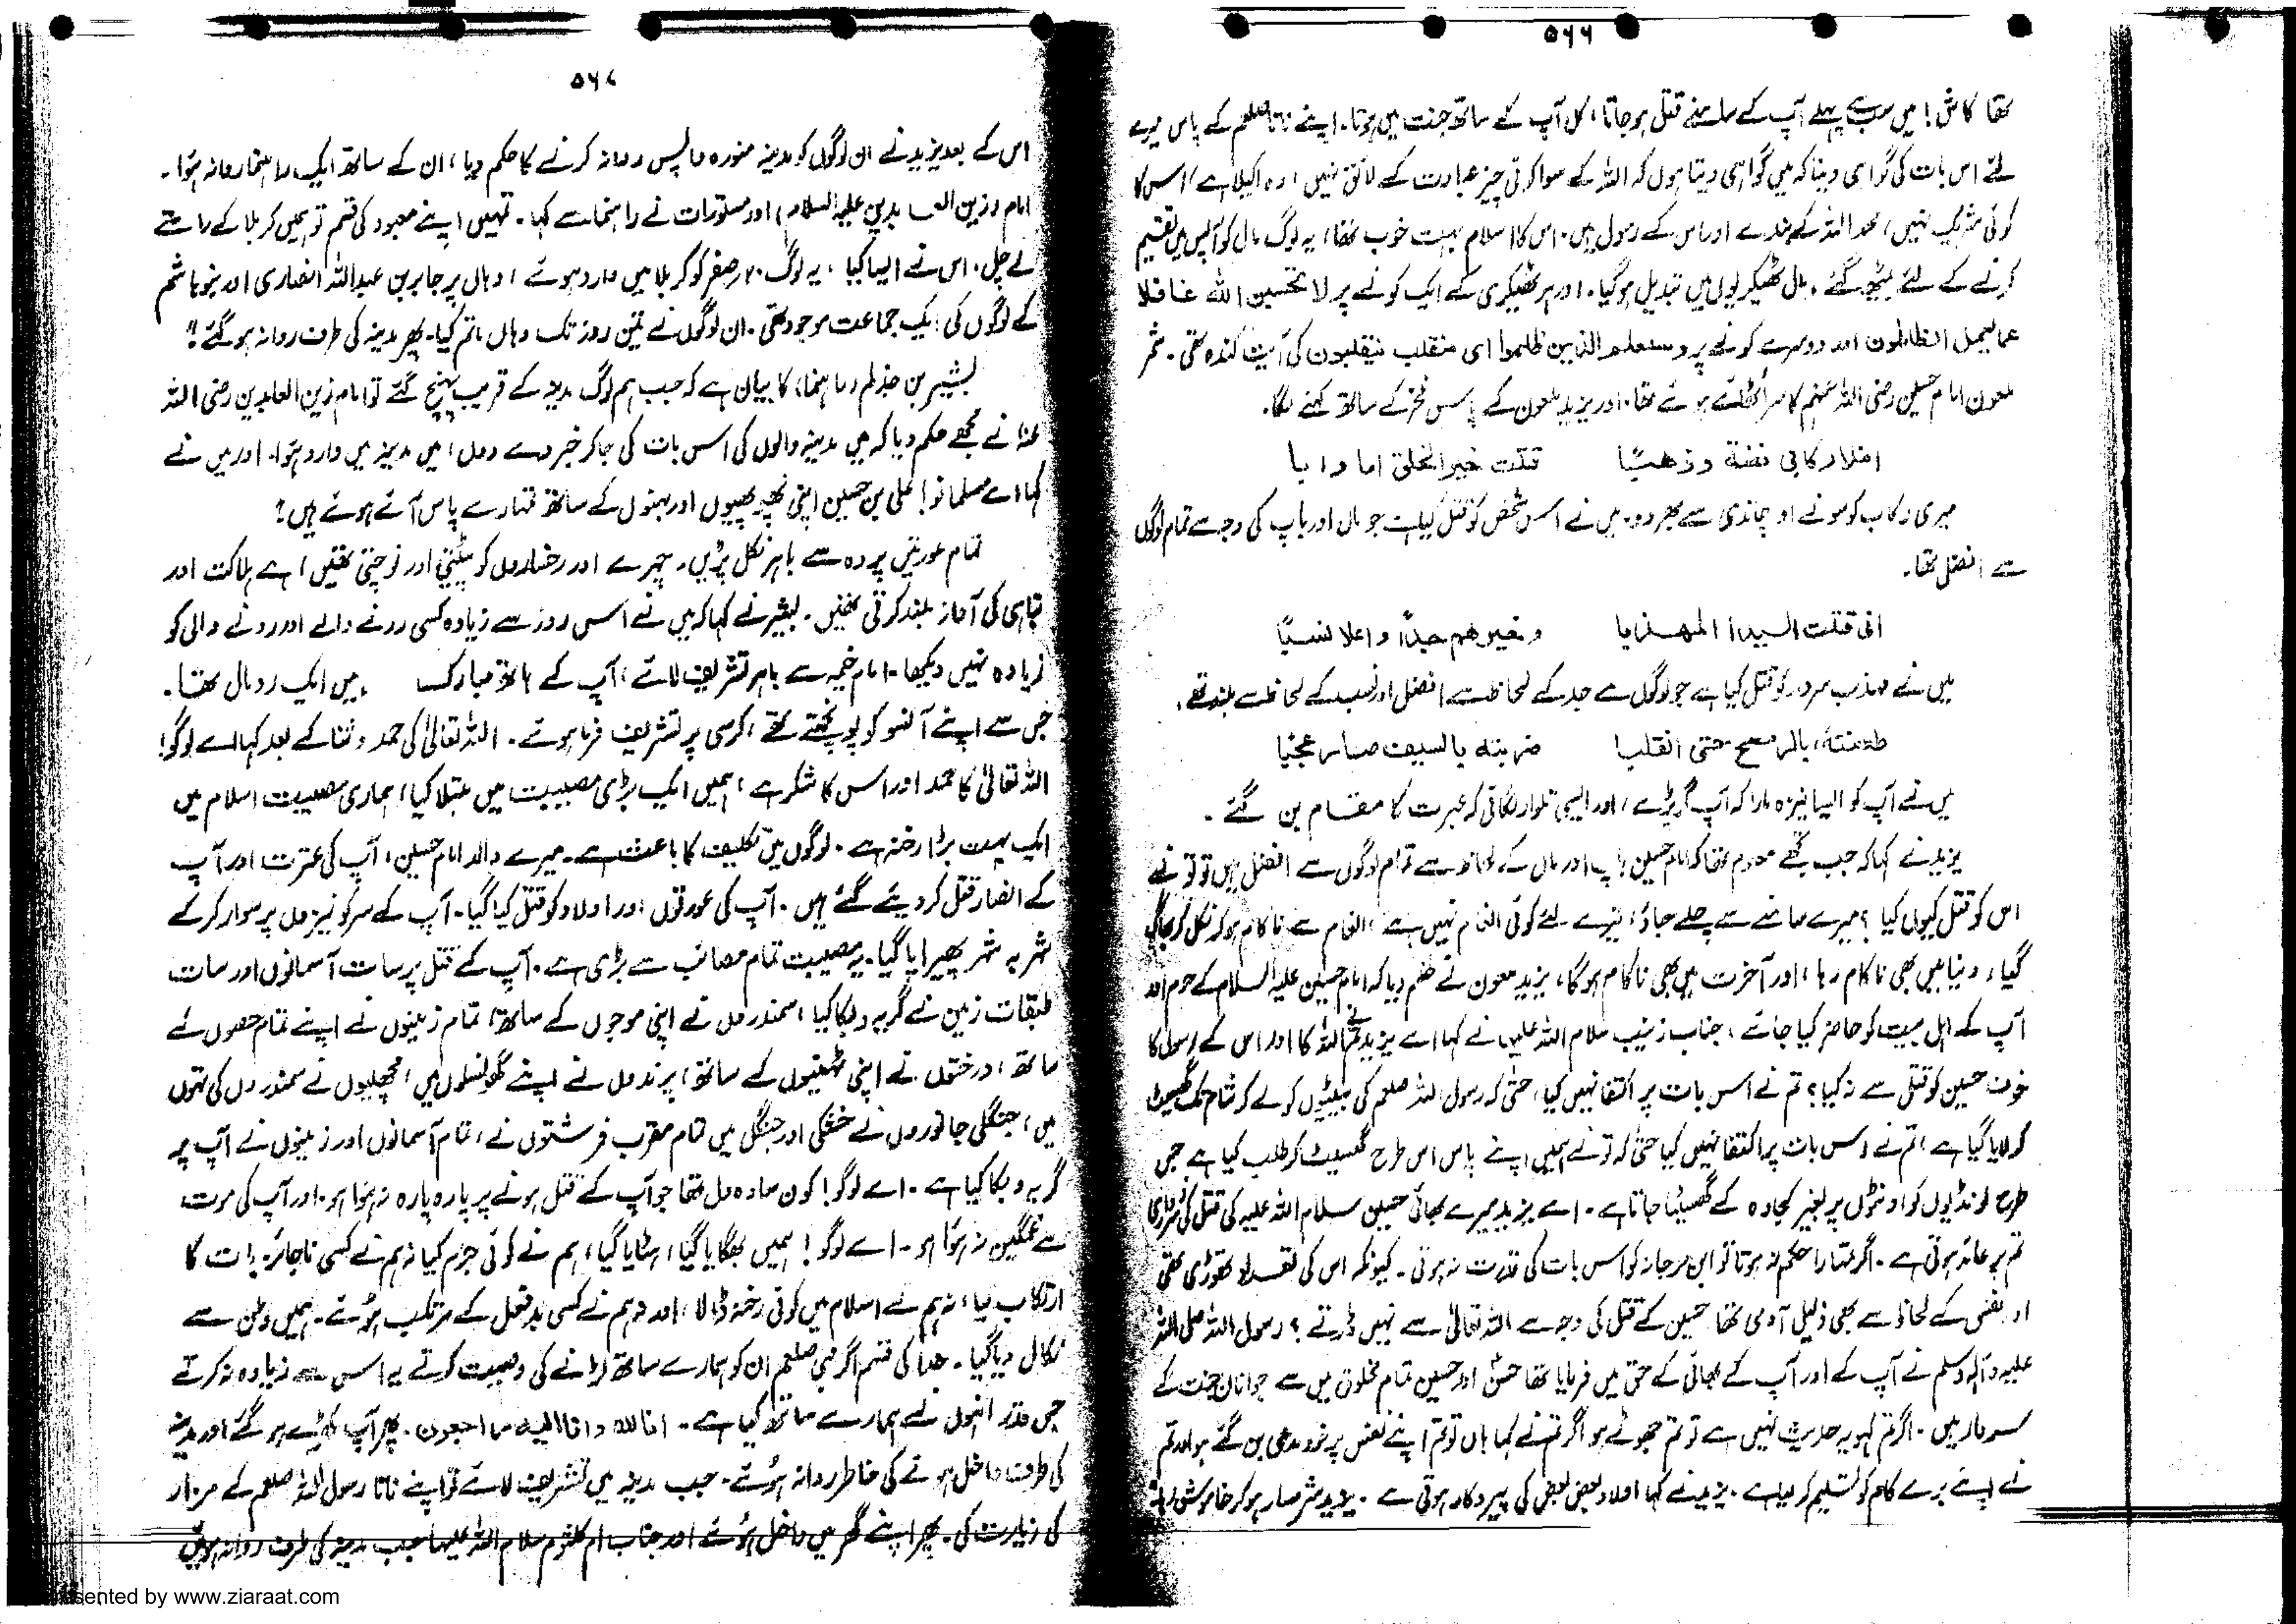 ۵۶۶
تھا کاش! میں سب سے پہلے آپ کے سامنے قتل ہو جاتا، کل آپ کے ساتھ جنت میں ہوتا۔ اپنے نانا صلعم کے پاس میرے
لئے اس بات کی گواہی دینا کہ میں گواہی دیتا ہوں کہ اللہ کے سوا کوئی چیز عبادت کے لائق نہیں، وہ اکیلا ہے، اس کا
کوئی شریک نہیں، محمد اللہ کے بندے اور اس کے رسول ہیں۔ اس کا اسلام بہت خوب تھا، یہ لوگ مال کو آپس میں تقسیم
کرنے کے لئے بیٹھ گئے، مال ٹھیکریوں میں تبدیل ہو گیا۔ اور ہر ٹھیکری کے ایک کونے پر لا تحسبن اللہ غافلا
عما یعمل الظالمون اور دوسرے کونے پر وسیعلم الذین ظلموا ای منقلب ینقلبون کی آیت کندہ تھی۔ شمر
ملعون امام حسین رضی اللہ عنہم کا سر اٹھائے ہوئے تھا، اور یزید ملعون کے پاس فخر کے ساتھ کہنے لگا۔
املا رکابی فضة وذهبًا قتلت خیر الخلق اما و ابا
میری رکاب کو سونے اور چاندی سے بھر دو، میں نے اس شخص کو قتل کیا ہے جو ماں اور باپ کی وجہ سے تمام لوگوں
سے افضل تھا۔
انی قتلت السید المهذبا وخیرهم جدًا و اعلا نسبًا
میں نے مہذب سردار کو قتل کیا ہے جو لوگوں سے جد کے لحاظ سے افضل اور نسب کے لحاظ سے بلند تھے،
طعنته بالرمح حتی انقلبا ضربته بالسیف صار عجبا
میں نے آپ کو ایسا نیزہ مارا کہ آپ گر پڑے، اور ایسی تلوار لگائی کہ عبرت کا مقام بن گئے۔
یزید نے کہا کہ جب تجھے معلوم تھا کہ امام حسین باپ اور ماں کے لحاظ سے تمام لوگوں سے افضل ہیں تو تو نے
اس کو قتل کیوں کیا؟ میرے سامنے سے چلے جاؤ، تیرے لئے کوئی انعام نہیں ہے، انعام سے ناکام ہو کر نکل کر بھاگ
گیا، دنیا میں بھی ناکام رہا، اور آخرت میں بھی ناکام ہو گا، یزید ملعون نے حکم دیا کہ امام حسین علیہ السلام کے حرم اور
آپ کے اہل بیت کو حاضر کیا جائے، جناب زینب سلام اللہ علیہا نے کہا اے یزید تم نے اللہ کا اور اس کے رسول کا
خوف حسین کو قتل سے نہ کیا؟ تم نے اس بات پر اکتفا نہیں کیا، حتٰی کہ رسول اللہ صلعم کی بیٹیوں کو لے کر شام تک گھسیٹ
کر لایا گیا ہے، تم نے اس بات پر اکتفا نہیں کیا حتٰی کہ تو نے ہمیں اپنے پاس اس طرح گھسیٹ کر طلب کیا ہے جس
طرح لونڈیوں کو اونٹوں پر بغیر کجاوہ کے گھسیٹا جاتا ہے۔ اے یزید میرے بھائی حسین سلام اللہ علیہ کی قتل کی ذمہ داری
تم پر عائد ہوتی ہے۔ اگر تمہارا حکم نہ ہوتا تو ابن مرجانہ کو اس بات کی قدرت نہ ہوتی۔ کیونکہ اس کی تعداد تھوڑی تھی
اور نفس کے لحاظ سے بھی ذلیل آدمی تھا حسین کے قتل کی وجہ سے اللہ تعالیٰ سے نہیں ڈرتے؟ رسول اللہ صلی اللہ
علیہ وآلہ وسلم نے آپ کے اور آپ کے بھائی کے حق میں فرمایا تھا حسنؑ اور حسینؑ تمام مخلوق میں سے جوانان جنت کے
سردار ہیں۔ اگر تم کہو یہ حدیث نہیں ہے تو تم جھوٹے ہو اگر تم نے کہا ہاں تو تم اپنے نفس پر خود مدعی بن گئے ہو اور تم
نے اپنے برے کام کو تسلیم کر لیا ہے۔ یزید نے کہا اولاد بعض بعض کی پیروکار ہوتی ہے۔ یزید شرمسار ہو کر خاموش رہا۔
۵۶۷
اس کے بعد یزید نے ان لوگوں کو مدینہ منورہ واپس روانہ کرنے کا حکم دیا، ان کے ساتھ ایک راہنما روانہ ہوا۔
امام (زین العابدین علیہ السلام) اور مستورات نے راہنما سے کہا۔ تمہیں اپنے معبود کی قسم تو ہمیں کربلا کے راستے
لے چل، اس نے ایسا کیا، یہ لوگ ۲۰ صفر کو کربلا میں وارد ہوئے، وہاں پر جابر بن عبداللہ انصاری اور بنو ہاشم
کے لوگوں کی ایک جماعت موجود تھی۔ ان لوگوں نے تین روز تک وہاں ماتم کیا۔ پھر مدینہ کی طرف روانہ ہو گئے"
بشیر بن جذلم (راہنما) کا بیان ہے کہ جب ہم لوگ مدینہ کے قریب پہنچ گئے تو امام زین العابدین رضی اللہ
عنہٗ نے مجھے حکم دیا کہ میں مدینہ والوں کی اس بات کی جا کر خبر دے دوں، میں مدینہ میں وارد ہوا۔ اور میں نے
کہا اے مسلمانو! علی بن حسین اپنی پھوپھیوں اور بہنوں کے ساتھ تمہارے پاس آئے ہوئے ہیں؟
تمام عورتیں پردہ سے باہر نکل پڑیں۔ چہرے اور رخساروں کو پیٹتی اور نوچتی تھیں، اے ہلاکت اور
تباہی کی آواز بلند کرتی تھیں۔ بشیر نے کہا کہ میں نے اس روز سے زیادہ کسی رونے والے اور رونے والی کو
زیادہ نہیں دیکھا۔ امام خیمہ سے باہر تشریف لائے، آپ کے ہاتھ مبارک میں ایک رومال تھا۔
جس سے اپنے آنسو کو پونچھتے تھے، کرسی پر تشریف فرما ہوئے۔ اللہ تعالیٰ کی حمد و ثنا کے بعد کہا اے لوگو!
اللہ تعالیٰ کا حمد اور اس کا شکر ہے، ہمیں ایک بڑی مصیبت میں مبتلا کیا، ہماری مصیبت اسلام میں
ایک بہت بڑا رخنہ ہے۔ لوگوں میں تکلیف کا باعث ہے۔ میرے والد امام حسین، آپ کی عترت اور آپ
کے انصار قتل کر دیئے گئے ہیں۔ آپ کی عورتوں اور اولاد کو قتل کیا گیا۔ آپ کے سر کو نیزوں پر سوار کر کے
شہر بہ شہر پھیرایا گیا۔ یہ مصیبت تمام مصائب سے بڑی ہے۔ آپ کے قتل پر سات آسمانوں اور سات
طبقات زمین نے گریہ و بکا کیا، سمندروں نے اپنی موجوں کے ساتھ، تمام زمینوں نے اپنے تمام حصوں کے
ساتھ، درختوں نے اپنی ٹہنیوں کے ساتھ، پرندوں نے اپنے گھونسلوں میں، مچھلیوں نے سمندروں کی تہوں
میں، جنگلی جانوروں نے خشکی اور جنگل میں تمام مقرب فرشتوں نے، تمام آسمانوں اور زمینوں نے آپ پر
گریہ و بکا کیا ہے۔ اے لوگو! کون سا وہ دل تھا جو آپ کے قتل ہونے پر پارہ پارہ نہ ہوا ہو۔ اور آپ کی موت
سے غمگین نہ ہوا ہو۔ اے لوگو! ہمیں بھگایا گیا، ہٹایا گیا، ہم نے کوئی جرم کیا نہ ہم نے کسی ناجائز بات کا
ارتکاب کیا، نہ ہم نے اسلام میں کوئی رخنہ ڈالا، اور نہ ہم نے کسی بد فعل کے مرتکب ہوئے۔ ہمیں وطن سے
نکال دیا گیا۔ خدا کی قسم اگر نبی صلعم ان کو ہمارے ساتھ لڑانے کی وصیت کرتے یہ اس سے زیادہ نہ کرتے
جس قدر انہوں نے ہمارے ساتھ کیا ہے۔ انا للہ و انا الیہ راجعون۔ پھر آپ کھڑے ہو گئے اور مدینہ
کی طرف داخل ہونے کی خاطر روانہ ہوئے۔ جب مدینہ میں تشریف لائے تو اپنے نانا رسول اللہ صلعم کے مزار
کی زیارت کی۔ پھر اپنے گھر میں داخل ہوئے اور جناب ام کلثوم سلام اللہ علیہا جب مدینہ کی طرف روانہ ہوئیں
sented by www.ziaraat.com